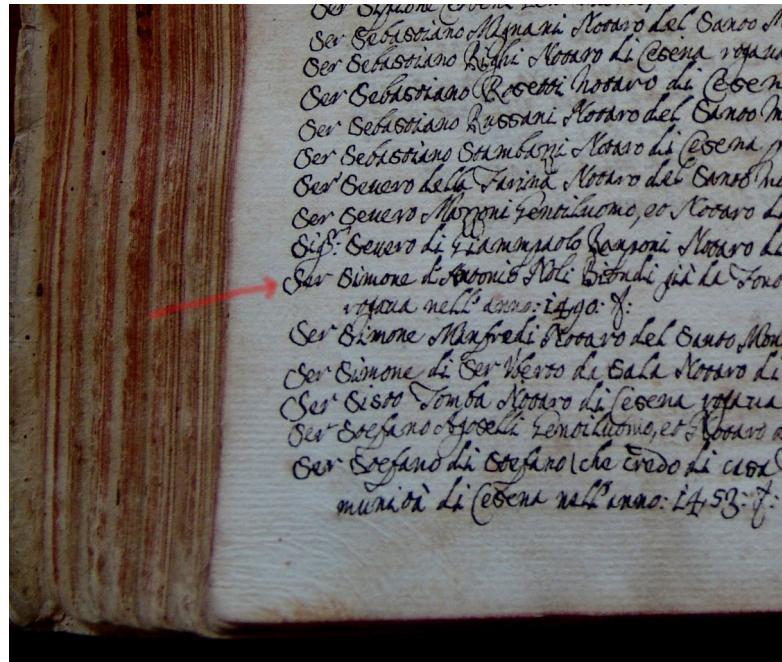 Ser Sebastiano Mignani Notaro del Santo
Ser Sebastiano Righi Notaro di Cesena rogaua
Ser Sebastiano Rosetti notaro di Cesen
Ser Sebastiano Russani Notaro del Santo M
Ser Sebastiano Stambazzi Notaro di Cesena
Ser Seuero della Farina Notaro del Santo
Ser Seuero Mazzoni Gentiluomo, et Notaro di
Sigr: Seuero di Giammpaolo Notaro di
Ser Simone d'Antonio Noli Biondi già da
rogaua nell'anno: 1490:
Ser Simone Manfredi Notaro del Santo Mon
Ser Simone di Ser Vberto da Sala Notaro di
Ser Sisto Tomba Notaro di Cesena rogaua
Ser Stefano Agoselli Gentiluomo, et Notaro
Ser Stefano di Stefano (che credo di casa
munità di Cesena nell'anno: 1453: